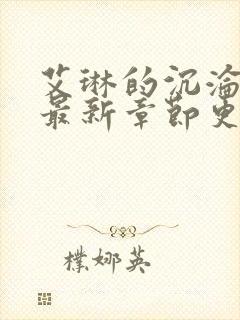 艾琳的沉沦
最新章节更
樸娜英